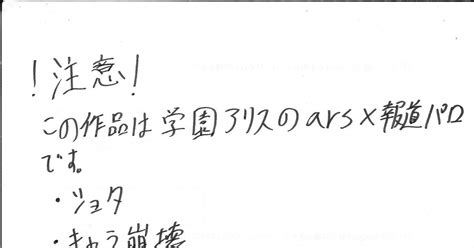 ！注意！
この作品は学園アリスのars×報道パロ
です。
・ショタ
・キャラ崩壊